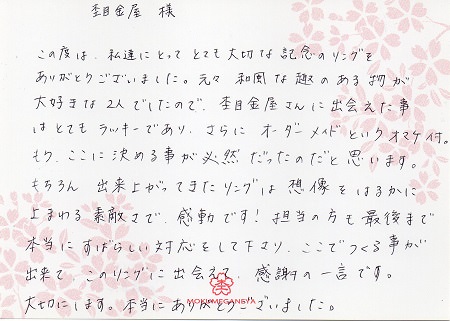 杢目金屋 様
この度は、私達にとって とても大切な記念のリングを
ありがとうございました。元々 和風な趣のある物が
大好きな2人でしたので、杢目金屋さんに出会えた事
はとてもラッキーであり、さらに オーダーメイドというオマケ付。
もう、ここに決める事が必然だったのだと思います。
もちろん 出来上がってきたリングは 想像をはるかに
上まわる素敵さで、感動です! 担当の方も最後まで
本当にすばらしい対応をして下さり、ここでつくる事が
出来て、このリングに出会えて、感謝の一言です。
大切にします。本当にありがとうございました。
MOKUMEGANEYA